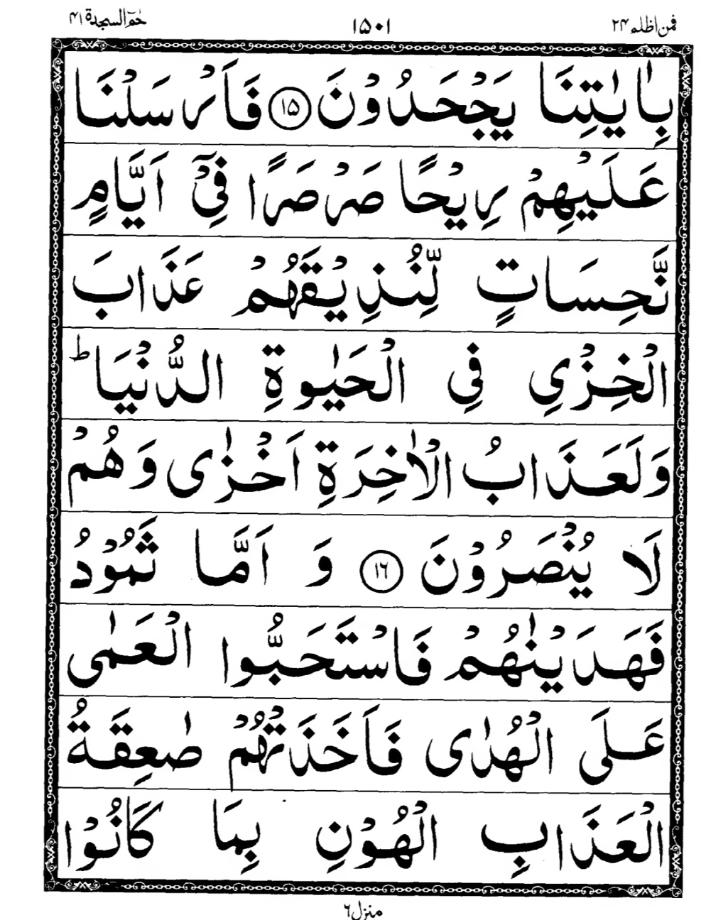 فمن اظلم ۲۴ ۱۵۰۱ حٰمٓ السجدۃ ۴۱
بِاٰيٰتِنَا يَجْحَدُوْنَ ۝۱۵ فَاَرْسَلْنَا
عَلَيْهِمْ رِيْحًا صَرْصَرًا فِيْۤ اَيَّامٍ
نَّحِسَاتٍ لِّنُذِيْقَهُمْ عَذَابَ
الْخِزْيِ فِي الْحَيٰوةِ الدُّنْيَا ؕ
وَلَعَذَابُ الْاٰخِرَةِ اَخْزٰى وَهُمْ
لَا يُنْصَرُوْنَ ۝۱۶ وَ اَمَّا ثَمُوْدُ
فَهَدَيْنٰهُمْ فَاسْتَحَبُّوا الْعَمٰى
عَلَى الْهُدٰى فَاَخَذَتْهُمْ صٰعِقَةُ
الْعَذَابِ الْهُوْنِ بِمَا كَانُوْا
منزل ۶